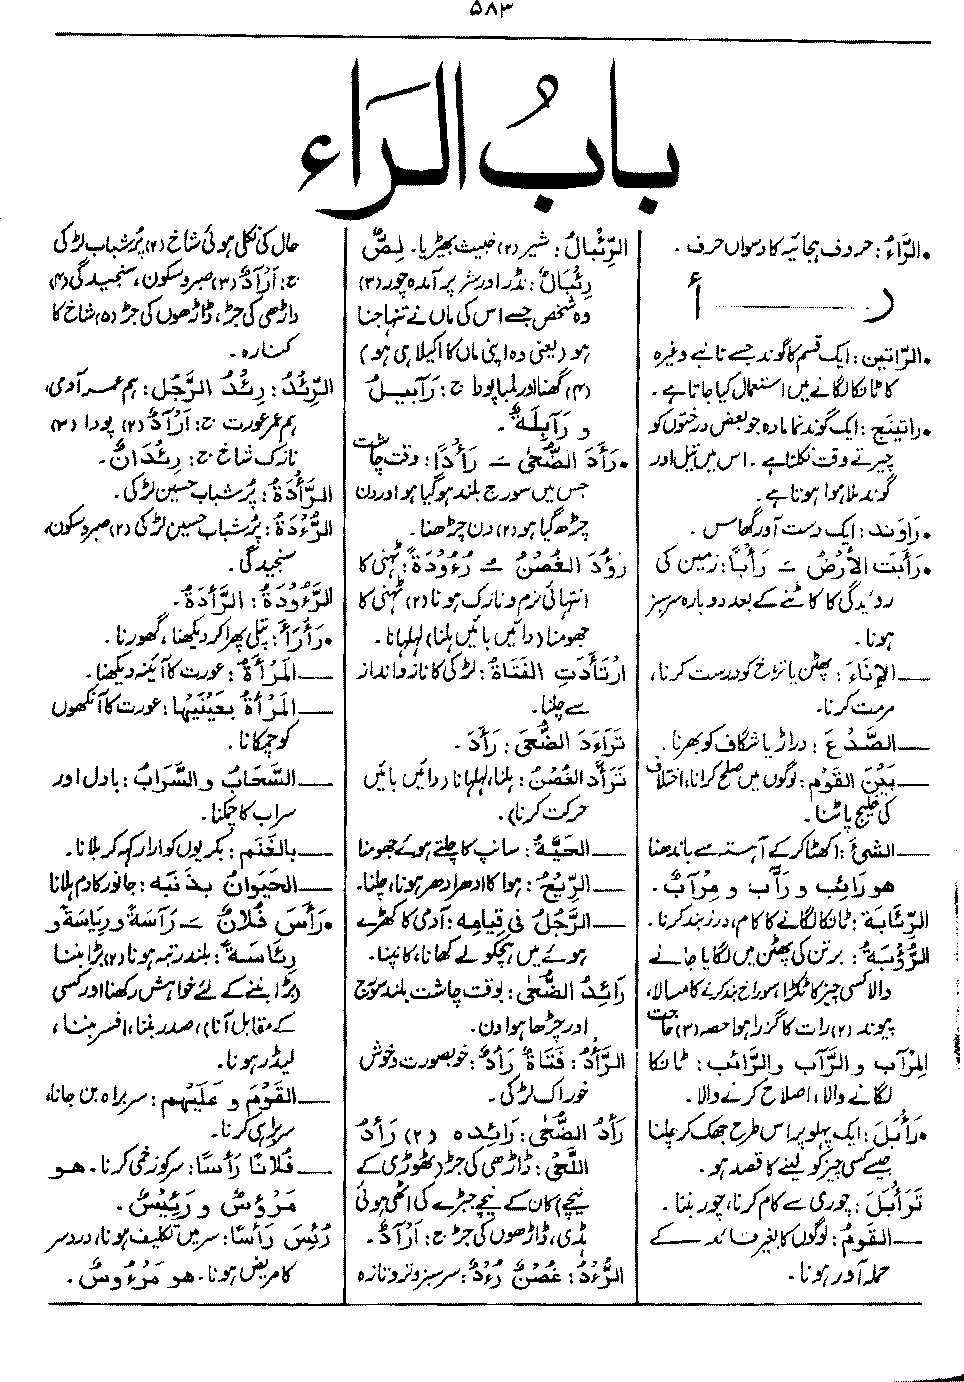 ۵۸۳
بابُ الرَاء
•الرَّاءُ: حروف ہجائیہ کا دسواں حرف۔
ر ——— أ
•الرَّاتین: ایک قسم کا گوند جسے تانبے وغیرہ
کا ٹانکا لگانے میں استعمال کیا جاتا ہے۔
•راتینج: ایک گوند نما مادہ جو بعض درختوں کو
چیرتے وقت نکلتا ہے۔ اس میں تیل اور
گوند ملا ہوا ہوتا ہے۔
•رَاوَند: ایک دست آور گھاس۔
•رَأبَتِ الأرْضُ ــَـ رَأبًا: زمین کی
روئیدگی کا کاٹنے کے بعد دوبارہ سرسبز
ہونا۔
—الإنَاءَ: پھٹن یا تڑخ کو درست کرنا،
مرمت کرنا۔
—الصَّدْعَ: دراڑ یا شگاف کو بھرنا۔
—بَیْنَ القَوْمِ: لوگوں میں صلح کرانا، اختلاف
کی خلیج پاٹنا۔
—الشیءَ: اکٹھا کرکے آہستہ سے باندھنا
ھو رَائِب و رَأب و مِرْآبٌ۔
الرِّئَابَة: ٹانکا لگانے کا کام، درز بند کرنا۔
الرُّؤْبَةُ: برتن کی پھٹن میں لگایا جانے
والا کسی چیز کا ٹکڑا، سوراخ بند کرنے کا مسالا،
پیوند (۲) رات کا گزرا ہوا حصہ (۳) حاجت
المِرْآب و الرَّآب و الرَّائب: ٹانکا
لگانے والا، اصلاح کرنے والا۔
•رَأبَلَ: ایک پہلو پر اس طرح جھک کر چلنا
جیسے کسی چیز کو لینے کا قصد ہو۔
تَرَأبَلَ: چوری سے کام کرنا، چور بننا۔
—القَوْمُ: لوگوں کا بغیر قائد کے
حملہ آور ہونا۔
الرِّئْبَالُ: شیر (۲) خبیث بھیڑیا۔ لِصٌّ
رِئبَالٌ: نڈر اور شر پر آمدہ چور (۳)
وہ شخص جسے اس کی ماں نے تنہا جنا
ہو (یعنی وہ اپنی ماں کا اکیلا ہی ہو)
(۴) گھنا اور لمبا پودا ج: رَآبیلُ
و رَآبِلَة۔
•رَأَدَ الضُّحٰی ــَـ رَأْدًا: وقت چاشت
جس میں سورج بلند ہوگیا ہو اور دن
چڑھ گیا ہو (۲) دن چڑھنا۔
رَؤُدَ الغُصْنُ ــُـ رُءُوْدَةً: ٹہنی کا
انتہائی نرم و نازک ہونا (۲) ٹہنی کا
جھومنا (دائیں بائیں ہلنا) لہلہانا۔
ارْتَأَدَتِ الفَتَاةُ: لڑکی کا ناز و انداز
سے چلنا۔
تَرَاءَدَ الضُّحٰی: رَأَدَ۔
تَرَأَّدَ الغُصْنُ: ہلنا، لہلہانا (دائیں بائیں
حرکت کرنا)۔
—الحَیَّةُ: سانپ کا چلتے ہوئے جھومنا
—الرِّیْحُ: ہوا کا ادھر ادھر ہونا، چلنا۔
—الرَّجُلُ فی قِیَامِه: آدمی کا کھڑے
ہوئے میں ہچکولے کھانا، کانپنا۔
رَائِدُ الضُّحٰی: بوقت چاشت بلند سورج
اور چڑھا ہوا دن۔
الرَّأدُ: فَتَاةٌ رَأدٌ: خوبصورت و خوش
خوراک لڑکی۔
رَأدُ الضُّحٰی: رَائِدہ (۲) رَأدُ
اللَّحْیِ: ڈاڑھی کی جڑ (ٹھوڑی کے
نیچے) کان کے نیچے جبڑے کی اٹھی ہوئی
ہڈی، ڈاڑھوں کی جڑ ج: أرْآدٌ۔
الرُّءْدُ: غُصْنٌ رُءْدٌ: سرسبز و تروتازہ
حال کی نکلی ہوئی شاخ (۲) پُر شباب لڑکی
ج: أرْآدٌ (۳) صبر و سکون، سنجیدگی (۴)
داڑھی کی جڑ، ڈاڑھوں کی جڑ (۵) شاخ کا
کنارہ۔
الرِّئْدُ: رِئْدُ الرَّجُلِ: ہم عمر آدمی،
ہم عمر عورت ج: أرْآدٌ (۲) پودا (۳)
نازک شاخ ج: رِئْدَانٌ۔
الرَّأْدَةُ: پُر شباب حسین لڑکی۔
الرُّءْدَةُ: پُر شباب حسین لڑکی (۲) صبر و سکون،
سنجیدگی۔
الرَّءُوْدَةُ: الرَّأدَةُ۔
•رَأرَأ: پتلی پھرا کر دیکھنا، گھورنا۔
—المَرْأَةُ: عورت کا آئینہ دیکھنا۔
—المَرْأَةُ بِعَیْنَیْهَا: عورت کا آنکھوں
کو چمکانا۔
—السَّحَابُ و السَّرَابُ: بادل اور
سراب کا چمکنا۔
—بالغَنَمِ: بکریوں کو ارار کہہ کر بلانا۔
—الحَیوانُ بِذَنَبِه: جانور کا دم ہلانا
•رَأَسَ فُلانٌ ــَـ رَآسَةً و رِیَاسَةً و
رِئَاسَةً: بلند رتبہ ہونا (۲) بڑا بننا
(بڑا بننے کے لئے خواہش رکھنا اور کسی
کے مقابل آنا)، صدر بننا، افسر بننا،
لیڈر ہونا۔
—القَوْمَ و عَلَیْهِم: سربراہ بن جانا،
سربراہی کرنا۔
—فُلانًا رَأسًا: سر کو زخمی کرنا۔ ھو
مَرْؤُسٌ و رَئِیْسٌ۔
رُئِسَ رَأسًا: سر میں تکلیف ہونا، درد سر
کا مریض ہونا۔ ھو مَرْءُوسٌ۔